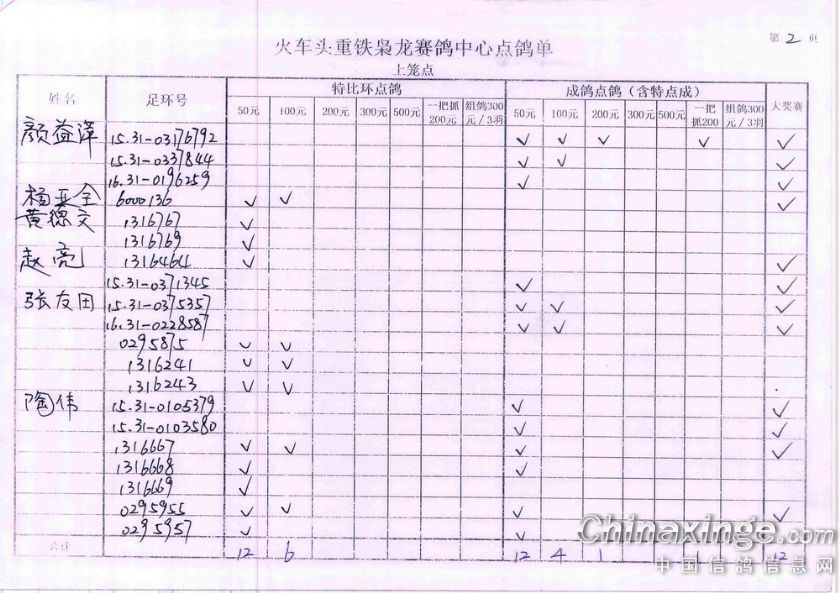 第 2 页
火车头重铁枭龙赛鸽中心点鸽单
上笼点
姓名 足环号 特比环点鸽 成鸽点鸽（含特点成） 大奖赛
50元 100元 200元 300元 500元 一把抓200元 组鸽300元/3羽 50元 100元 200元 300元 500元 一把抓200 组鸽300元/3羽
颜益泽 15.31-0376792 ✓ ✓ ✓ ✓ ✓
15.31-0337844 ✓ ✓ ✓
16.31-0196259 ✓ ✓
杨亚全 6000136 ✓ ✓ ✓
黄德文 1316767 ✓
1316769 ✓
赵亮 1316464 ✓ ✓
15.31-0371345 ✓ ✓
张友田 15.31-0375357 ✓ ✓ ✓
16.31-0228587 ✓ ✓ ✓
0295875 ✓ ✓
1316241 ✓ ✓
1316243 ✓ ✓
陶伟 15.31-0105379 ✓ ✓
15.31-0103580 ✓ ✓
1316667 ✓ ✓ ✓ ✓
1316668 ✓ ✓
1316669 ✓
0295955 ✓ ✓ ✓ ✓
0295957 ✓ ✓
合计 12 6 12 4 1 1 12
Chinaxinge.com
中国信鸽信息网